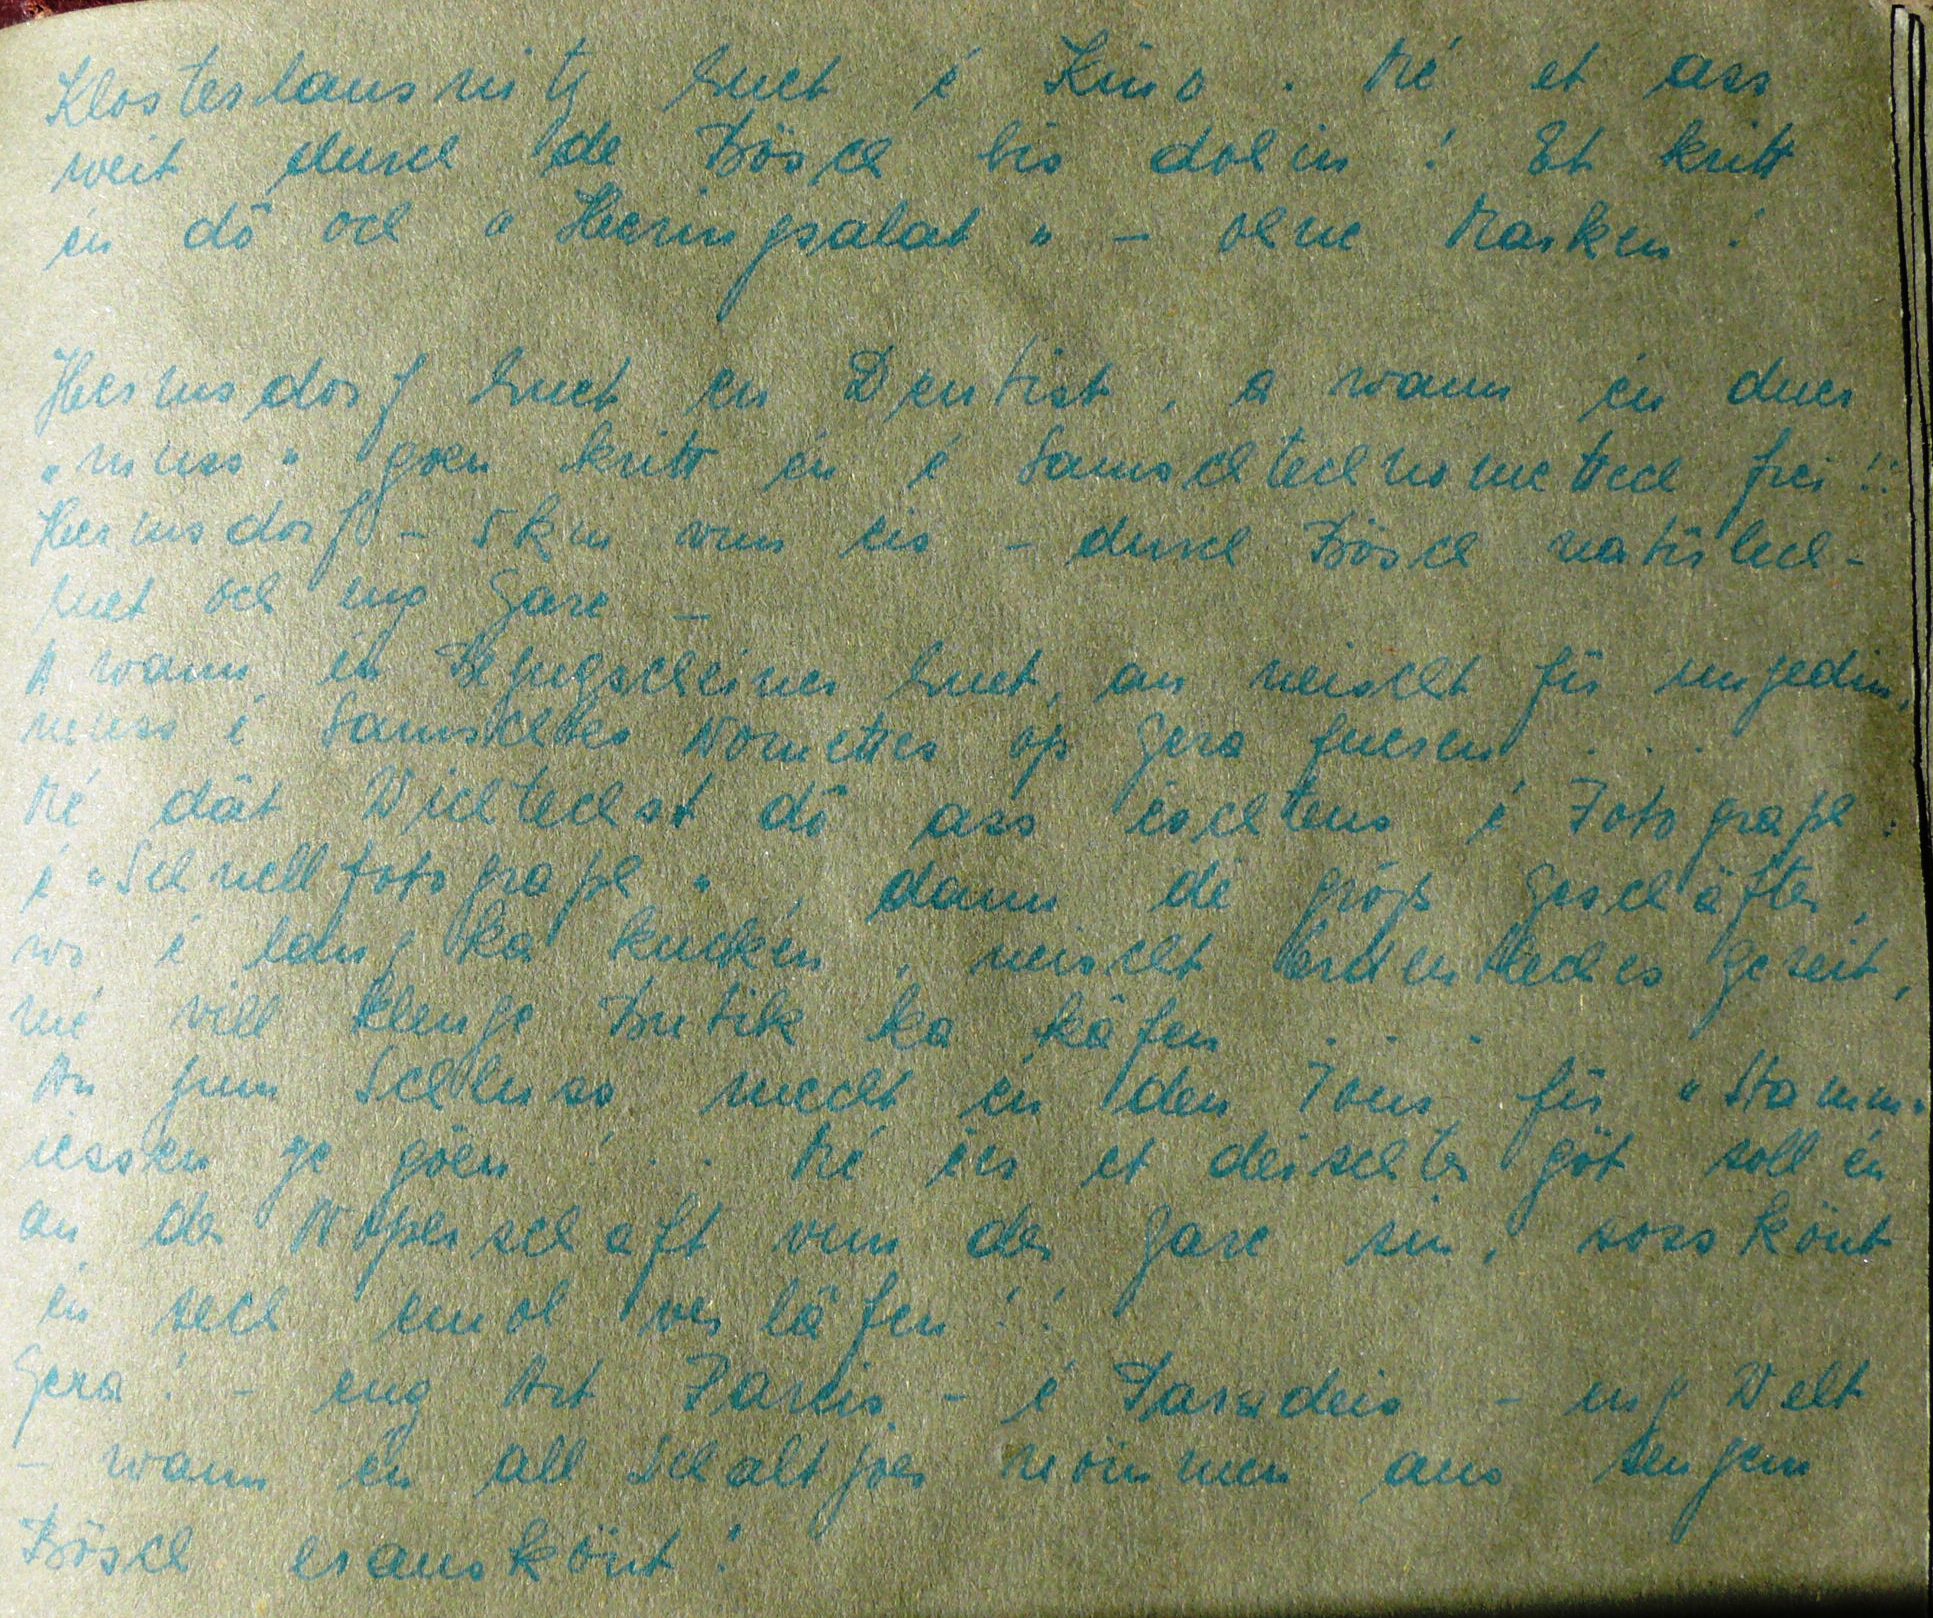 Klosterlausnitz huet é Kino. Mé et ass
weit durch de Bösch bis dohin! Et kritt
én dô och "Heeringsalat" - ohne Marken!
Hermsdorf huet en Dentist, a wann én duer
"muss" goen kritt én é Samschtechnomettech frei!!
Hermsdorf - 5km vun eis - durch Bösch natürlech -
huet och eng Gare -
A wann én Bezugscheiner huet, an neischt fir unzedin,
muss é Samschdes Nomettes op Gera fueren ...
Mé dât Wichtechst dô ass éschtens é Fotograph:
é "Schnellfotograph", dann dé grôß Geschäfter,
wo é lang ka kucken, neischt Erdentleches geseit,
mé vill kleng Butik ka kâfen ...
An zum Schluss mecht én den Tour fir "Stamm"
iessen ze goen! .. Mé ier et deischter gët soll én
an der Noperschaft vun der Gare sin, soss könt
én sech emol verlâfen!!
Gera! - eng Art Paréis - é Paradeis - eng Welt
- wann én all Schaltjoer nömmen aus sengem
Bösch erauskönt!